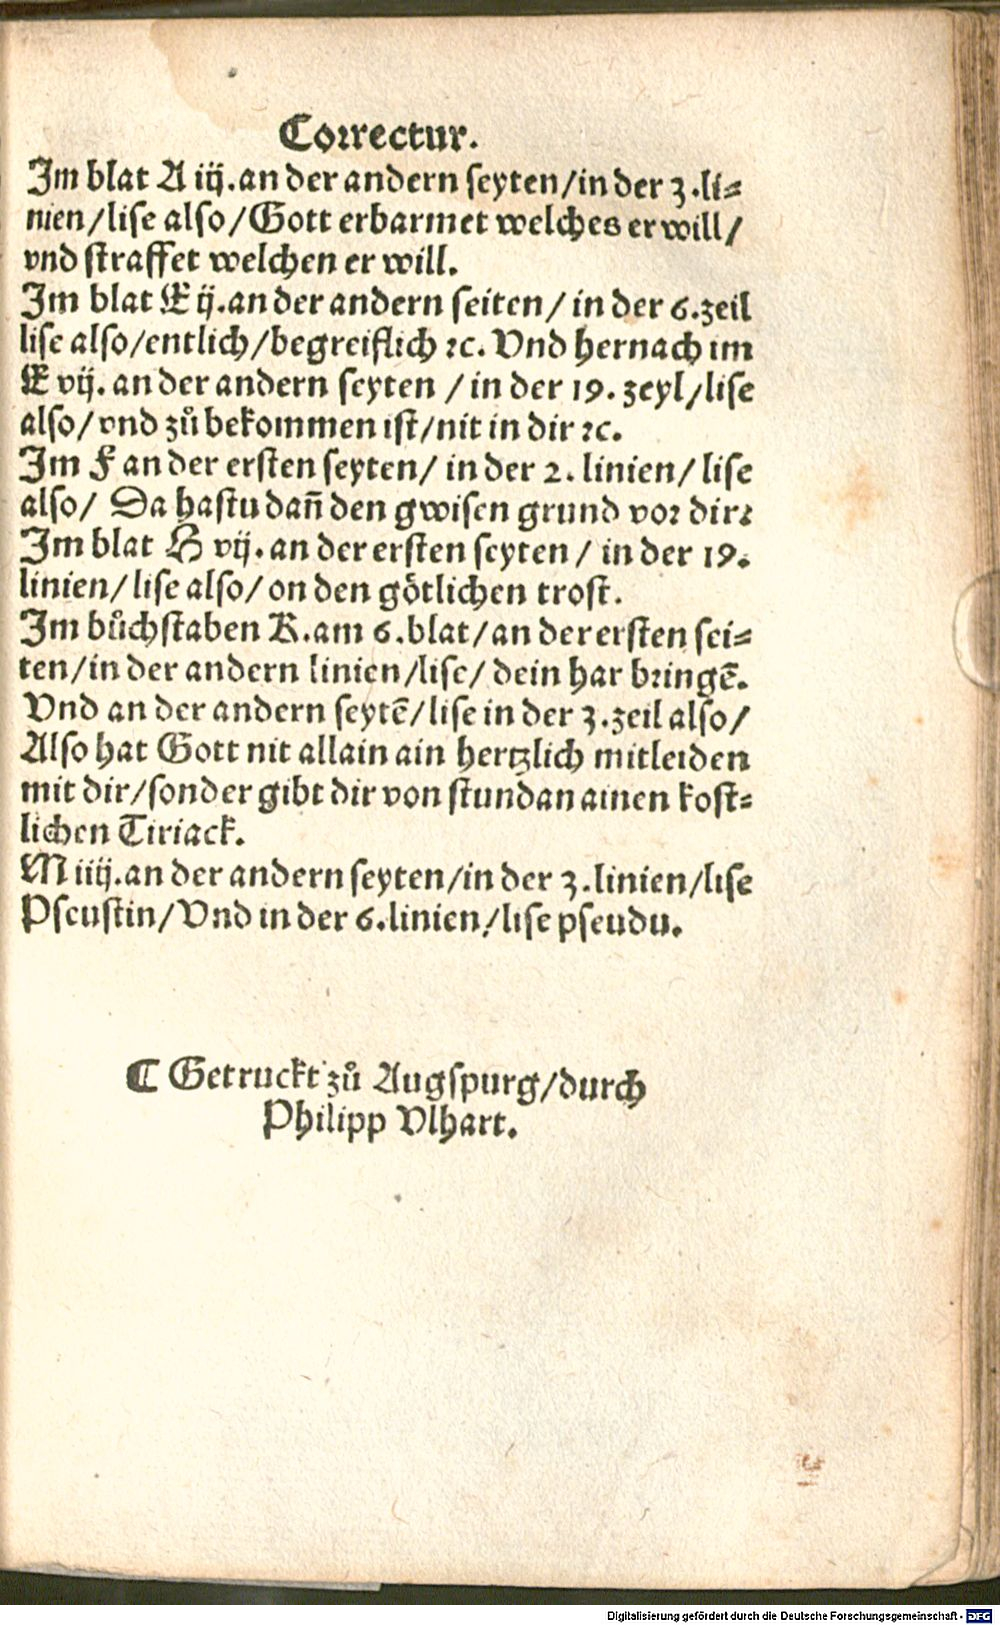 Correctur.
Im blat A iij. an der andern seyten/in der 3.li⸗
nien/lise also/Gott erbarmet welches er will/
vnd straffet welchen er will.
Im blat E ij.an der andern seiten/ in der 6.zeil
lise also/entlich/begreiflich ꝛc. Vnd hernach im
E vij. an der andern seyten / in der 19. zeyl/lise
also/vnd zů bekommen ist/nit in dir ꝛc.
Im F an der ersten seyten/ in der 2. linien/ lise
also/ Da hastu dañ den gwisen grund vor dir:
Im blat H vij. an der ersten seyten / in der 19.
linien/ lise also/ on den götlichen trost.
Im bůchstaben K.am 6.blat/an der ersten sei⸗
ten/in der andern linien/lise/ dein har bringē.
Vnd an der andern seytē/lise in der 3.zeil also/
Also hat Gott nit allain ain hertzlich mitleiden
mit dir/sonder gibt dir von stundan ainen kost⸗
lichen Tiriack.
M iiij.an der andern seyten/in der 3.linien/lise
Pseustin/Vnd in der 6.linien/lise pseudu.
C Getruckt zů Augspurg/durch
Philipp Vlhart.
Digitalisierung gefördert durch die Deutsche Forschungsgemeinschaft - DFG